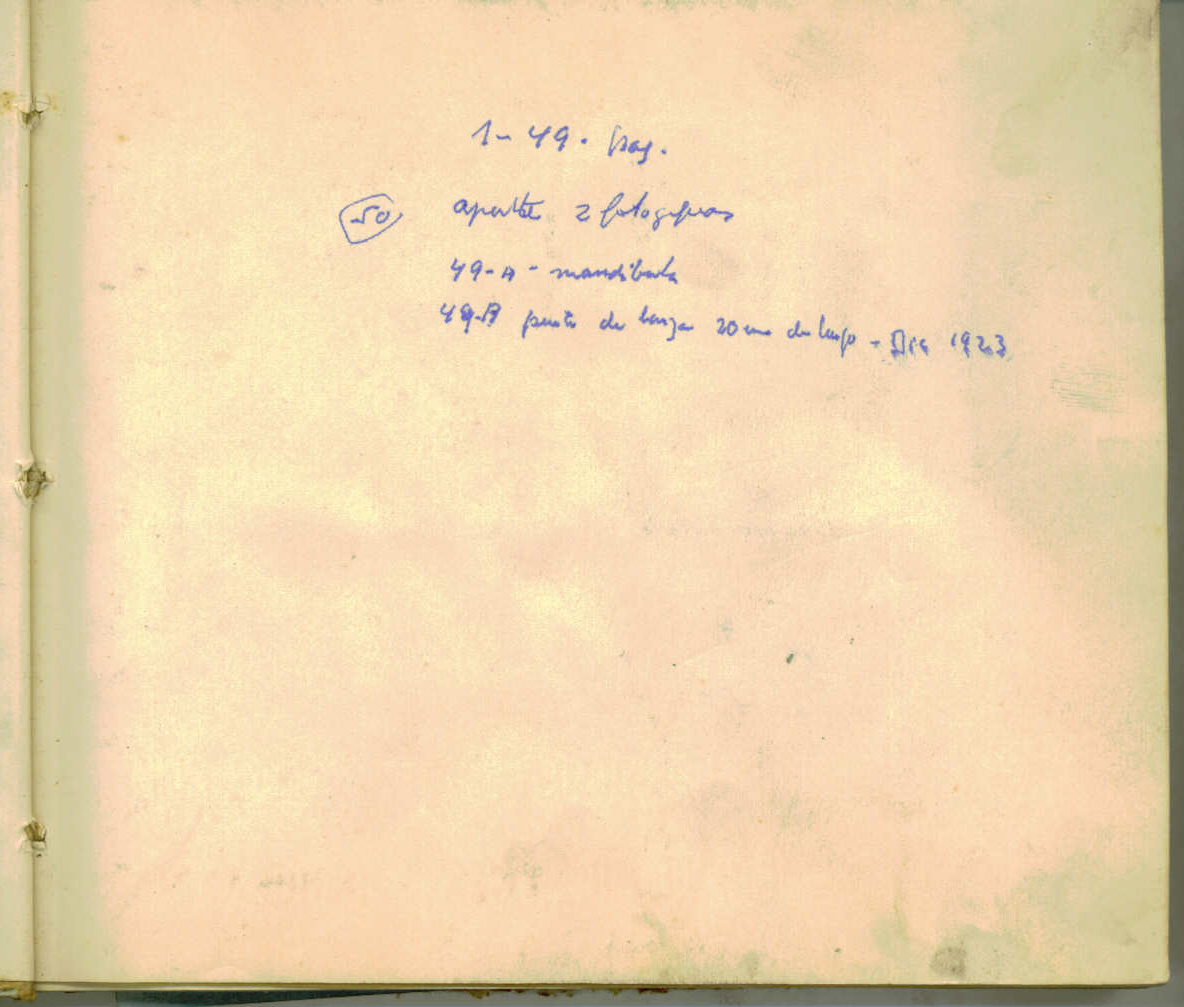 1- 49. pag.
50 aparte 2 fotografias
49-A - mandibula
49-B punta de lanza 20 cm de largo - Dic 1923